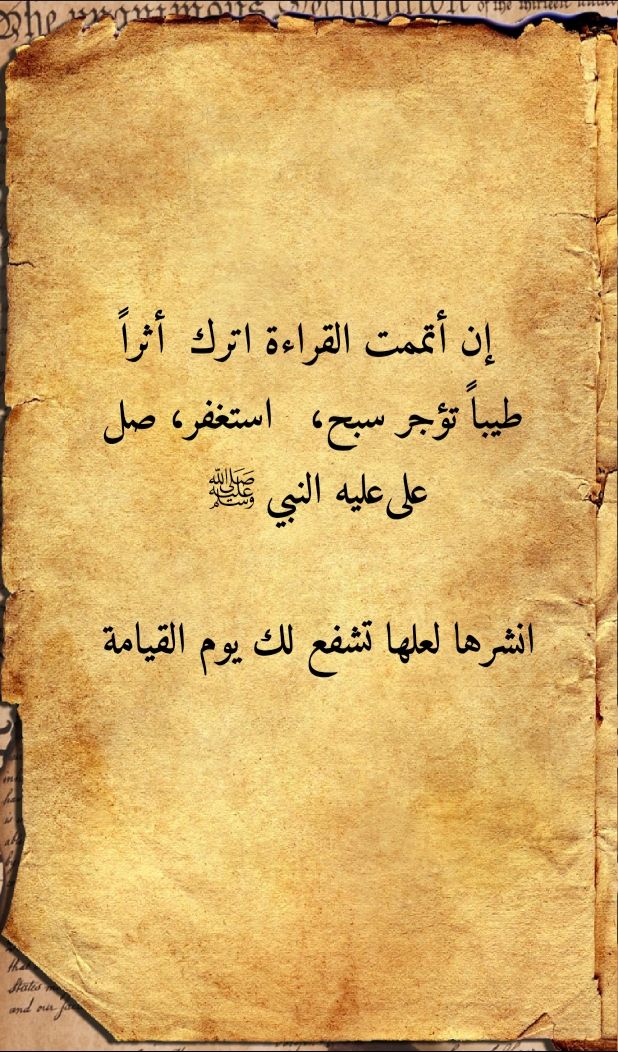 The unanimous Declaration of the thirteen united
إن أتممت القراءة اترك أثراً
طيباً تؤجر سبح، استغفر، صل
على عليه النبي ﷺ
انشرها لعلها تشفع لك يوم القيامة
States
and our